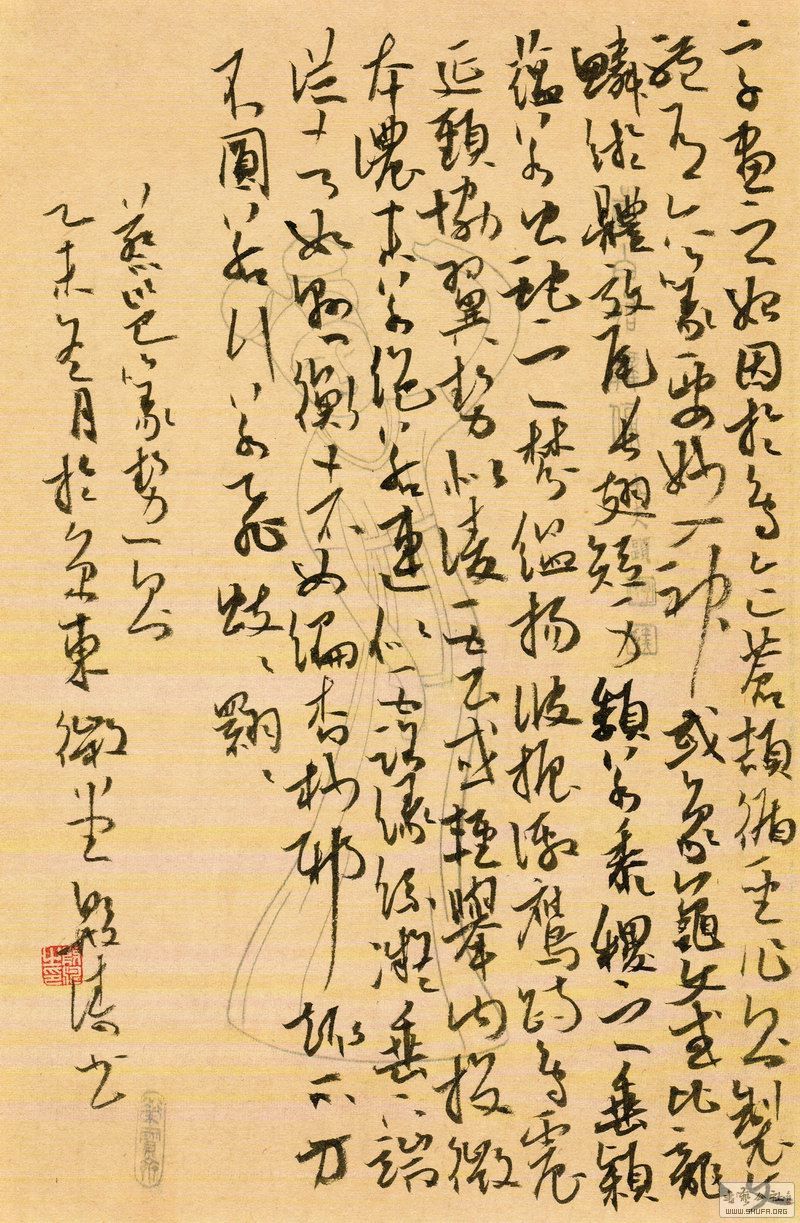 字畫之始因於鳥跡蒼頡循聖作則製文
體有六篆要妙入神或象龜文或比龍
鱗紆體放尾長翅短身頹若黍稷之垂穎
蘊若虫蛇之棼縕揚波振激鷹跱鳥震
延頸協翼勢似凌雲或輕舉內投微
本濃末若絕若連似露緣絲凝垂下端
從者如懸衡者不如編杳杪邪趣不方
不圓若行若飛蚑〻翾〻
蔡邕篆勢一則
乙未冬月於京東微堂書
WWW.SHUFA.ORG